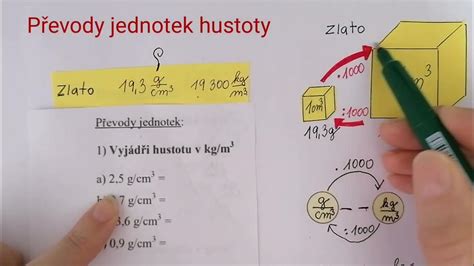 Převody jednotek hustoty
Zlato 19,3 g/cm³ 19 300 kg/m³
Převody jednotek:
1) Vyjádři hustotu v kg/m³
a) 2,5 g/cm³ =
7 g/cm³ =
,6 g/cm³ =
0,9 g/cm³ =
zlato
·1000
m³
1cm³
:1000
19,3g
·1000
g/cm³ kg/m³
:1000